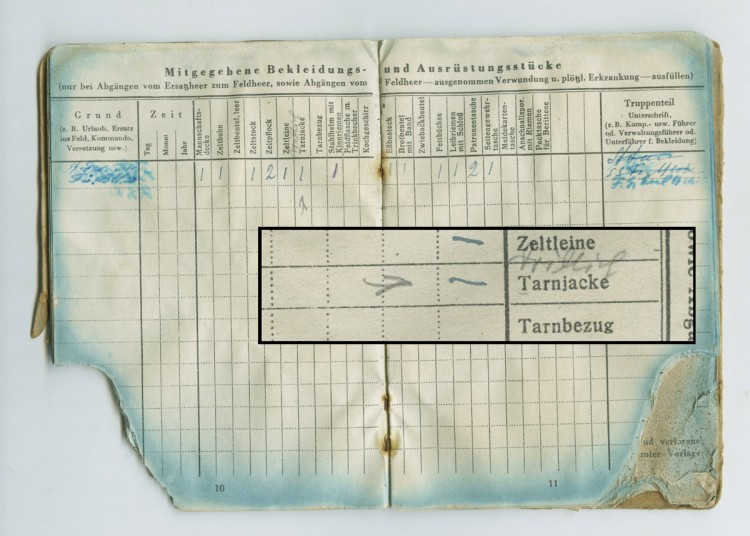 Mitgegebene Bekleidungs- und Ausrüstungsstücke
(nur bei Abgängen vom Ersatzheer zum Feldheer, sowie Abgängen vom Feldheer—ausgenommen Verwundung u. plötzl. Erkrankung—ausfüllen)
Grund
(z. B. Urlaub, Ersatz
ins Feld, Kommando,
Versetzung usw.)
Zeit
Tag
Monat
Jahr
Mannschafts-
decke
Zeltbahn
Zeltbeutel, leer
Zeltstock
Zeltpflock
Zeltleine
Tarnjacke
Tarnbezug
Stahlhelm mit
Kinnriemen
Feldflasche m.
Trinkbecher
Kochgeschirr
Eßbesteck
Brotbeutel
mit Band
Zwiebackbeutel
Fettbüchse
Leibriemen
mit Schloß
Patronentasche
Seitengewehr-
tasche
Meldekarten-
tasche
Anschnallspor.
mit Riemen
Packtasche
für Berittene
Truppenteil
Unterschrift,
(z. B. Komp.- usw. Führer
od. Verwaltungsführer od.
Unterführer f. Bekleidung)
1 1 1 1 2 1 1 1 1 1 1 2 1
1
Zeltleine
Drillich
Tarnjacke
Tarnbezug
nd verlorene
unter Vorlage
10
11